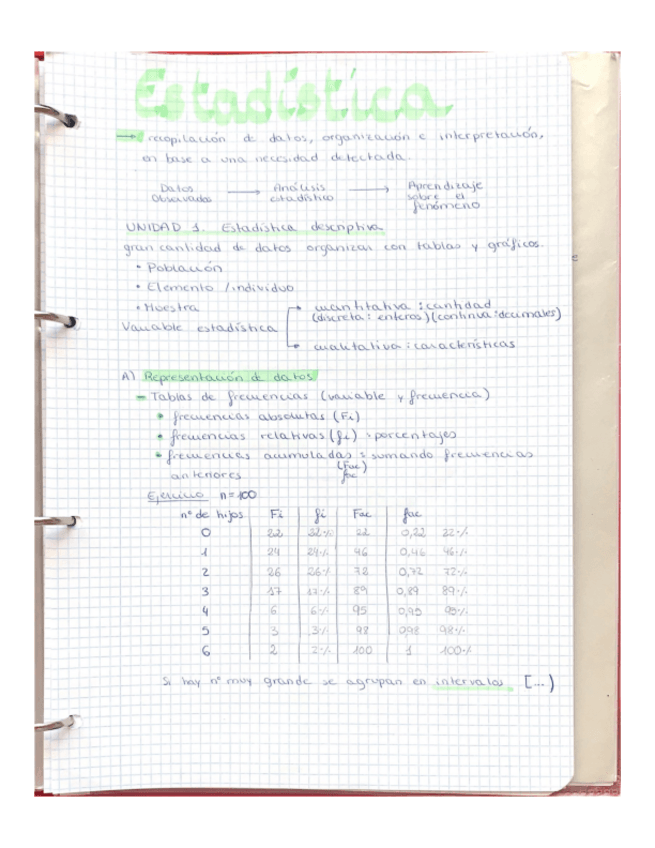 Estadística
→ recopilación de datos, organización e interpretación,
en base a una necesidad detectada.
Datos Observados → Análisis estadístico → Aprendizaje sobre el fenómeno
UNIDAD 1. Estadística descriptiva
gran cantidad de datos organizar con tablas y gráficos.
• Población
• Elemento / individuo
• Muestra
Variable estadística → cuantitativa : cantidad
(discreta : enteros) (continua : decimales)
→ cualitativa : características
A) Representación de datos
- Tablas de frecuencias (variable y frecuencia)
• frecuencias absolutas (Fi)
• frecuencias relativas (fi) : porcentajes
• frecuencias acumuladas : sumando frecuencias
anteriores (Fac) fac
Ejercicio n=100
nº de hijos Fi fi Fac fac
0 22 22% 22 0,22 22%
1 24 24% 46 0,46 46%
2 26 26% 72 0,72 72%
3 17 17% 89 0,89 89%
4 6 6% 95 0,95 95%
5 3 3% 98 0,98 98%
6 2 2% 100 1 100%
Si hay nº muy grande se agrupan en intervalos [...)